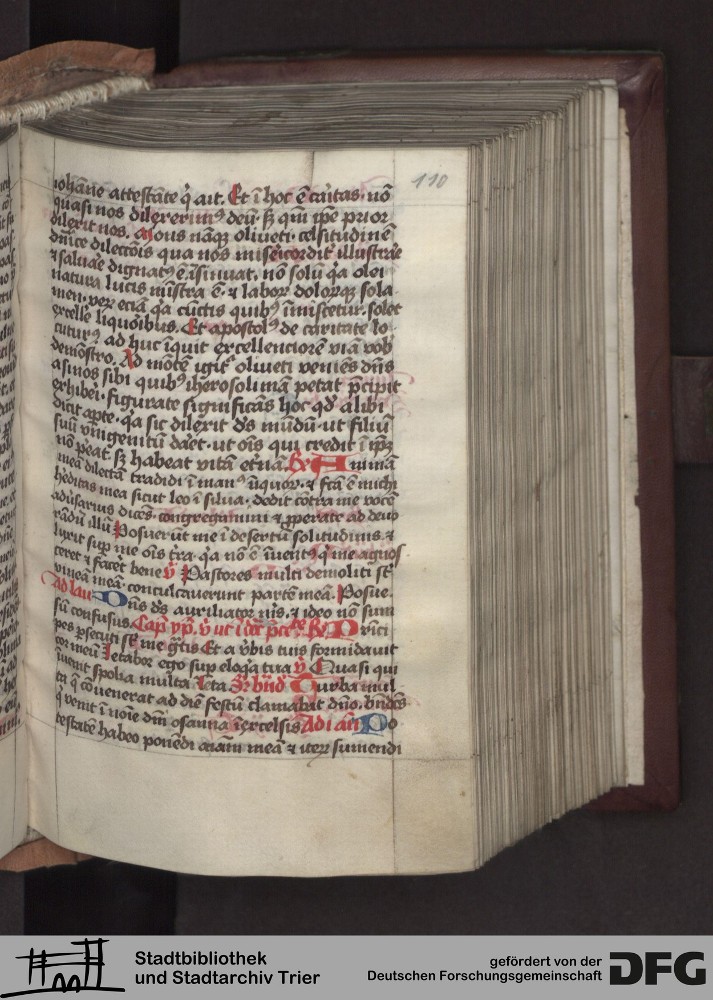 110
iohāne attestāte q̇ ait. Et ī hoc ē caritas. nō
quasi nos dilexerimꝰ deū. sꝫ qm̄ ipe prior
dilexit nos. Mons nāqꝫ oliveti. celsitudinē
dn̄ice dilecc̄ois qua nos misericordit' illustrare
⁊ salvare dignatꝰ ē īsinuat. nō solū q̇a olei
natura lucis mīstra ē. ⁊ laborū dolorūqꝫ sola
men. verū eciā q̇a cūctis quibꝰ īmiscetur. solet
excelle liquoribus. Et apostolꝰ de caritate lo
cuturꝰ ad huc īquit excellenciorē viā vob
demōstro. Ad mōtē igit' oliveti veniēs dn̄s
asinos sibi quibꝰ iherosolimā petat p̄cipit
exhiberi. figurate significās hoc qd' alibi
dicit apte. q̇a sic dilexit ds mūdū. ut filiū
suū unigenitū daret. ut oīs qui credit ī ip̄ꝫ
nō peat sꝫ habeat vitā et'nā. Rx Animā
meā dilectā tradidi ī manꝰ iniquorū. ⁊ fc̄ā ē michi
hēditas mea sicut leo ī silva. dedit cōtra me vocē
adūsarius dicēs. congregamini ⁊ pperate ad devo
rādū illū Posuerūt me ī desertū solitudinis. ⁊
luxit sup me oīs t'ra. q̇a nō ē īuentꝰ q̇ me agnos
ceret ⁊ facēt bene v̄ Pastores multi demoliti st̄
vineā meā. conculcaverunt partē meā. Posue.
ad lau Dn̄s ds auxiliator m̄s. ⁊ ideo nō sum
sū confusus. Cap ypi. v̄ ut ī d'r pces. Rx Prīci
pes psecuti st̄ me gr̄tis Et a v̄bis tuis formidavit
cor meū Letabor ego sup eloq̇a tua v̄ Quasi qui
īuenit spolia multa leta. Sr bn̄d Turba mul
ta q̄ cōvenerat ad diē festū clamabat dn̄o. bn̄dcs
q̇ venit ī noīe dn̄i osanna ī excelsis Ad i añ Po
testatē habeo ponēdi aīam meā ⁊ iterū sumendi
Stadtbibliothek
und Stadtarchiv Trier
gefördert von der
Deutschen Forschungsgemeinschaft
DFG